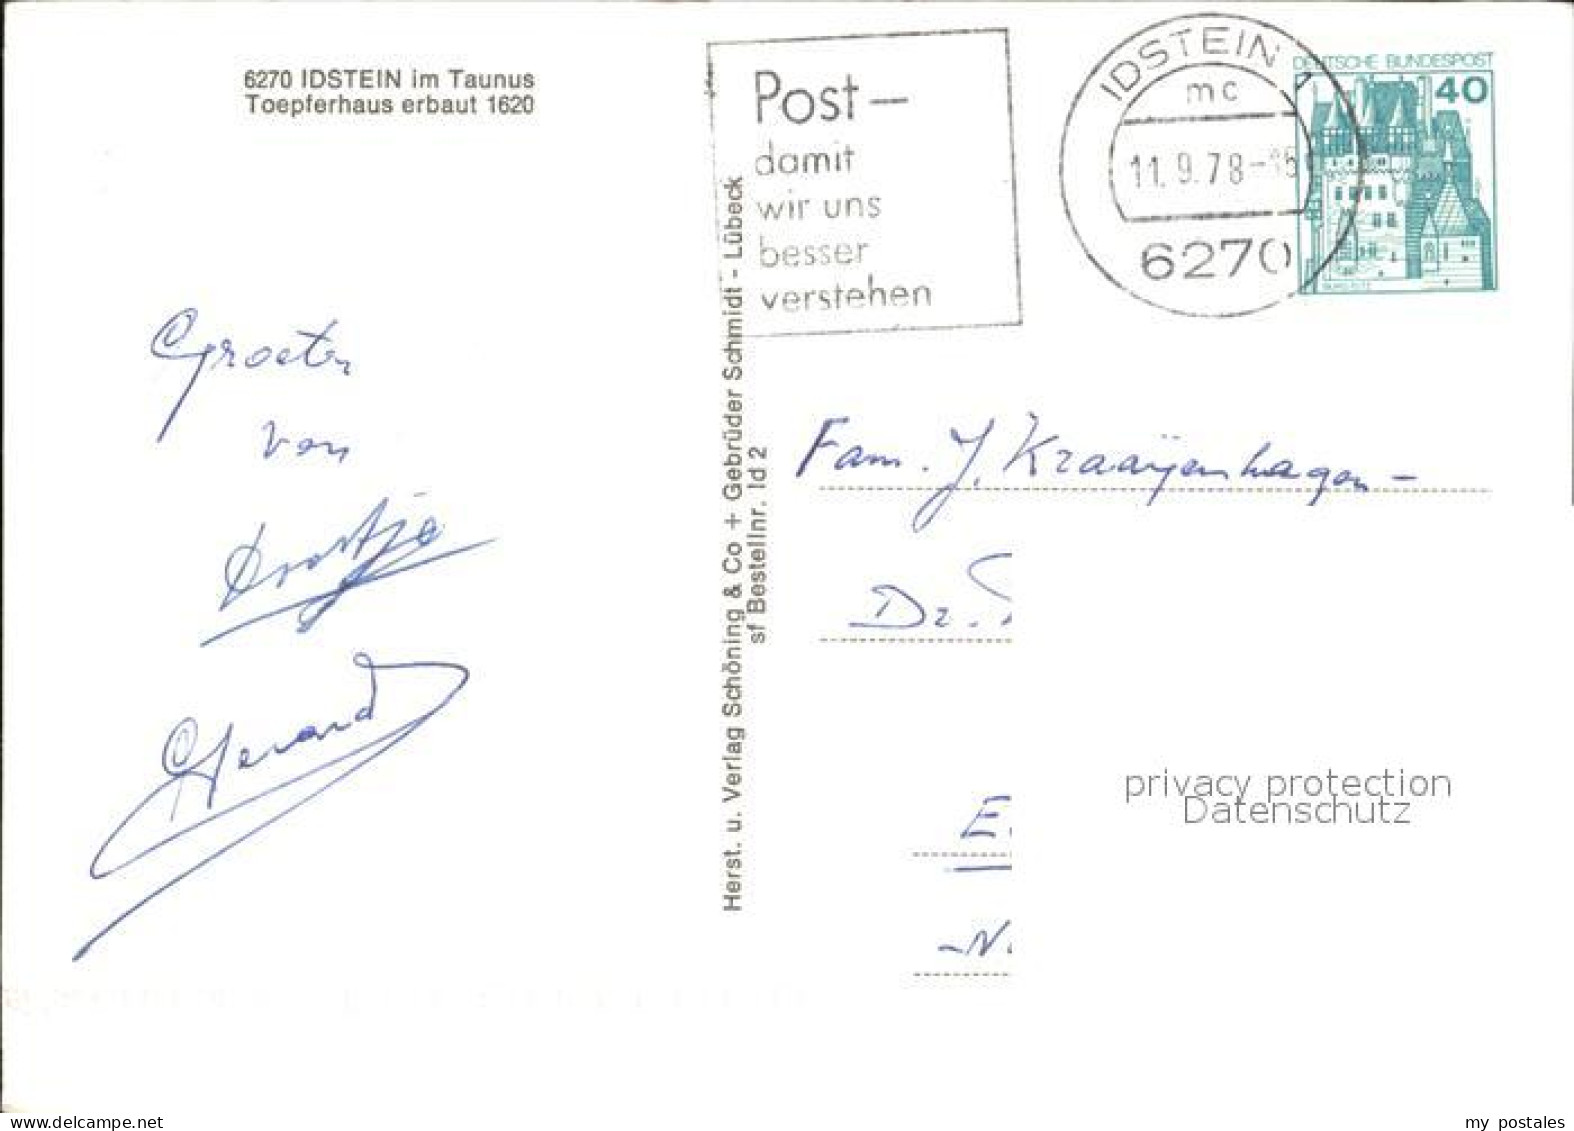 6270 IDSTEIN im Taunus
Toepferhaus erbaut 1620
Groeten
van
Gerard
Herst. u. Verlag Schöning & Co + Gebrüder Schmidt - Lübeck
sf Bestellnr. Id 2
Post –
damit
wir uns
besser
verstehen
IDSTEIN 1
mc
11.9.78-15
6270
DEUTSCHE BUNDESPOST
40
BURG ELTZ
Fam. J. Kraaijenhagen -
Dr.
E.
-N.
privacy protection
Datenschutz
my postales
www.delcampe.net